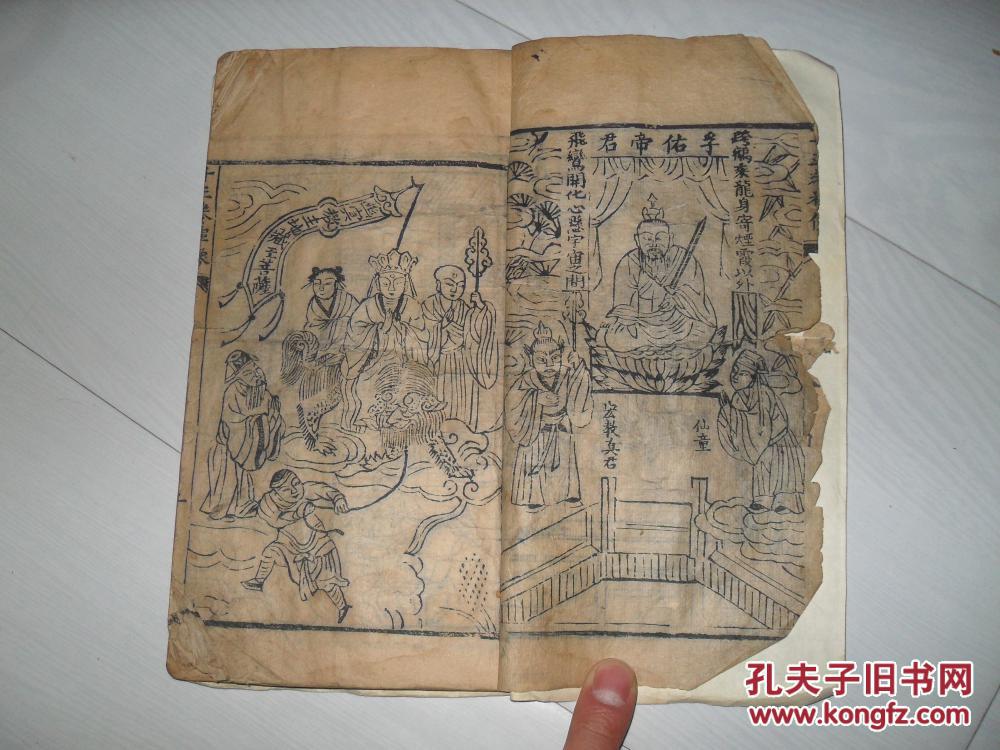 跨鶴乘龍身寄煙霞以外
孚佑帝君
飛鸞開化心懸宇宙之間
仙童
宏教真君
幽冥教主地藏王菩薩
孔夫子旧书网
www.kongfz.com